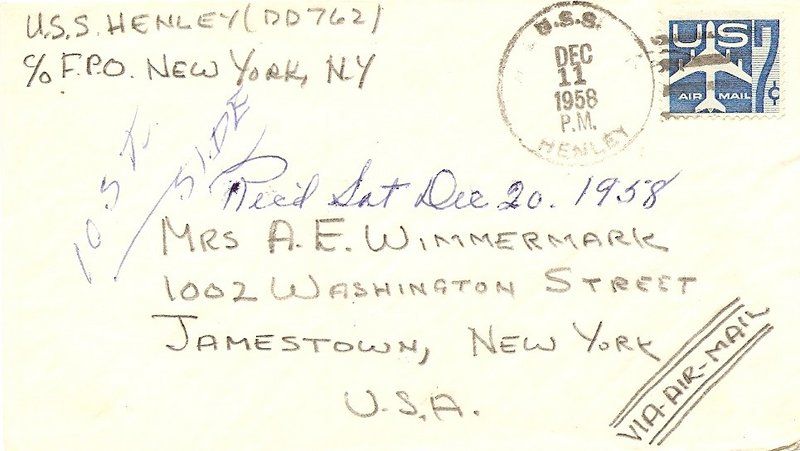 U.S.S. HENLEY (DD762)
c/o F.P.O. NEW YORK, N.Y
U.S.S.
DEC
11
1958
P.M.
HENLEY
US 7¢
AIR MAIL
SIDE
Rec'd Sat Dec 20. 1958
MRS A. E. WIMMERMARK
1002 WASHINGTON STREET
JAMESTOWN, NEW YORK
U.S.A.
VIA-AIR-MAIL